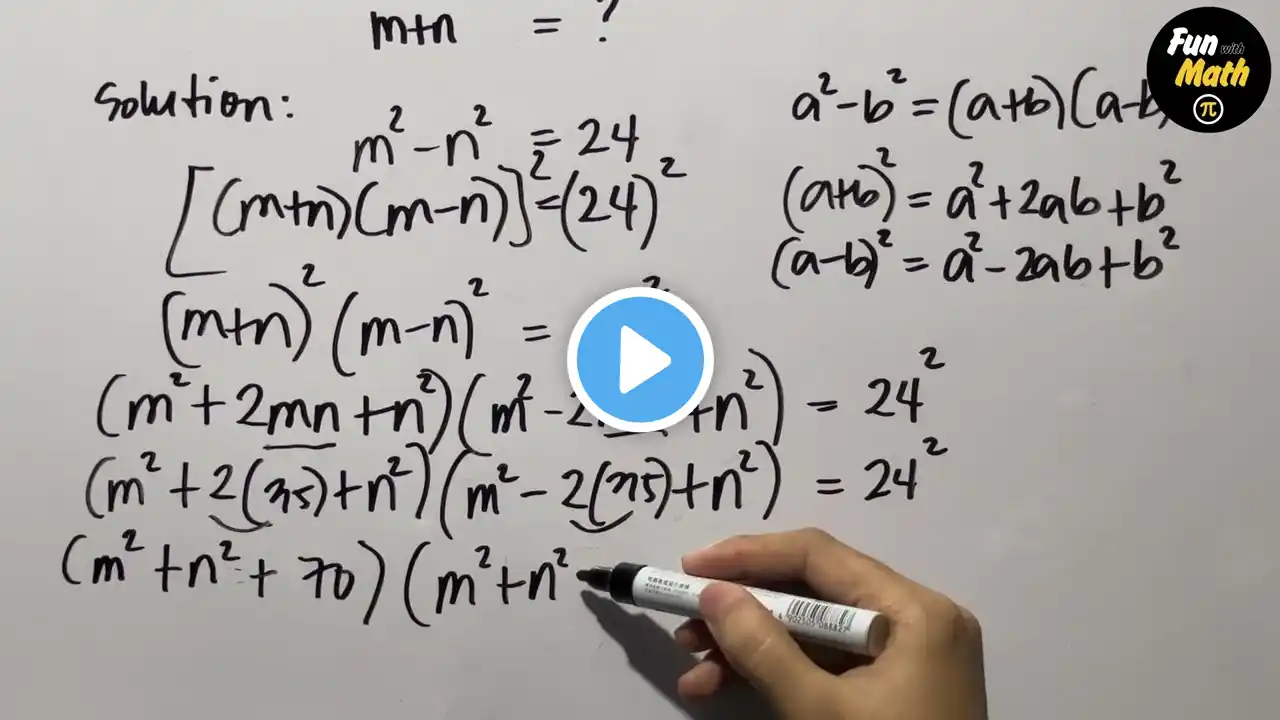 m+n = ?
Solution:
m² - n² = 24
[(m+n)(m-n)]² = (24)²
(m+n)² (m-n)² =
(m² + 2mn + n²)(m² - 2 + n²) = 24²
(m² + 2(35) + n²)(m² - 2(35) + n²) = 24²
(m² + n² + 70)(m² + n²
a² - b² = (a+b)(a-b
(a+b)² = a² + 2ab + b²
(a-b)² = a² - 2ab + b²
Fun with
Math
π